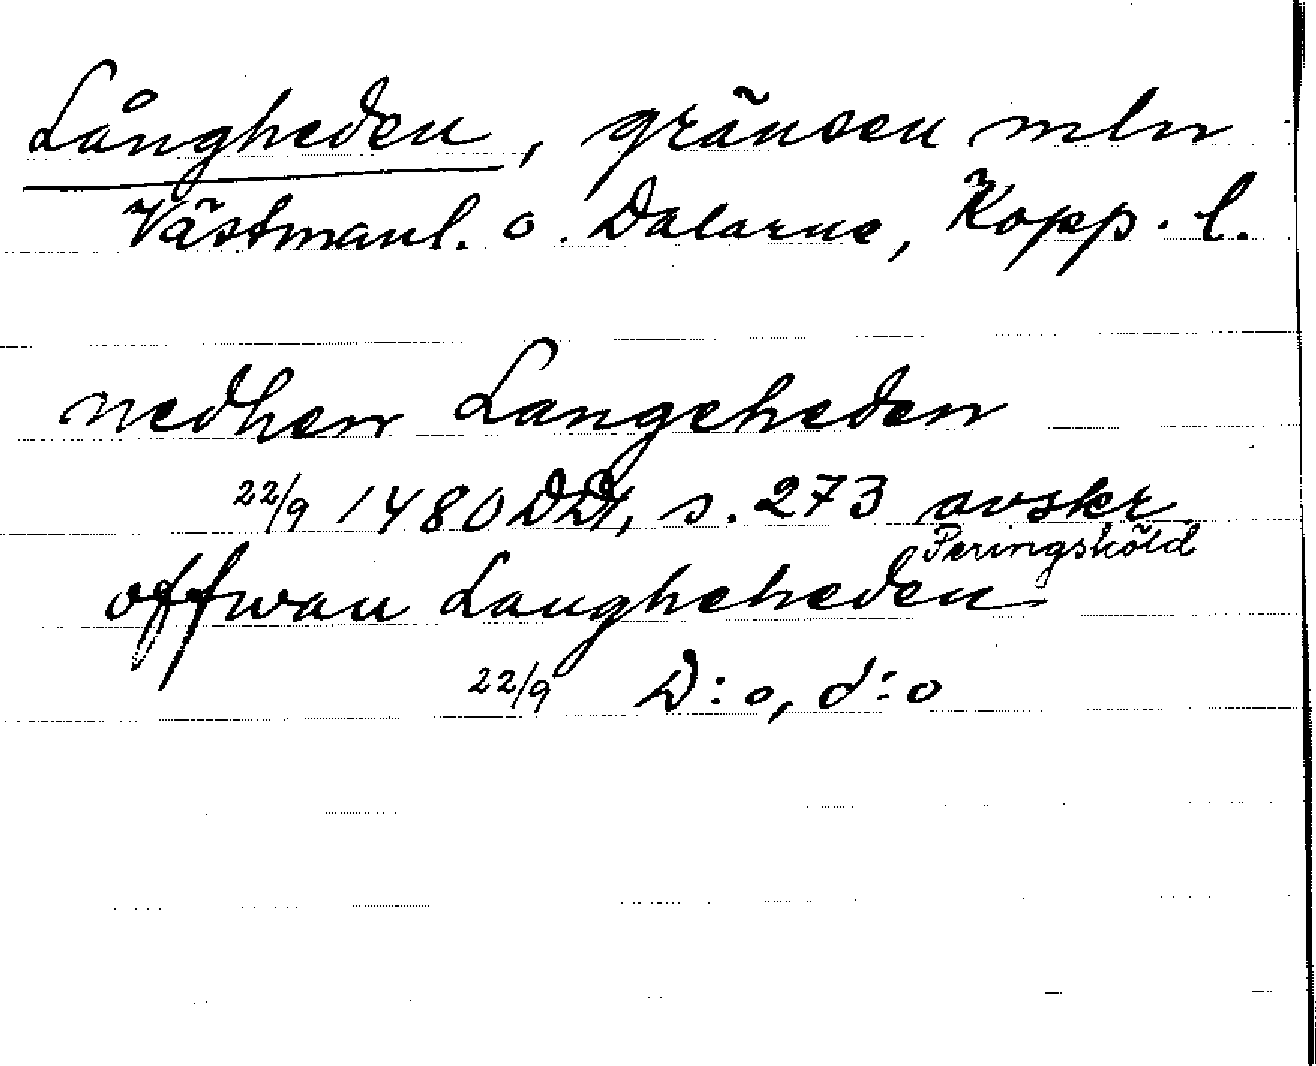 Långheden, gränsen mln
Västmanl. o. Dalarne, Kopp. l.
nedhen Langeheden
22/9 1480 DD1, s. 273 avskr
Peringsköld
offwan Langheheden
22/9 D:o, d:o